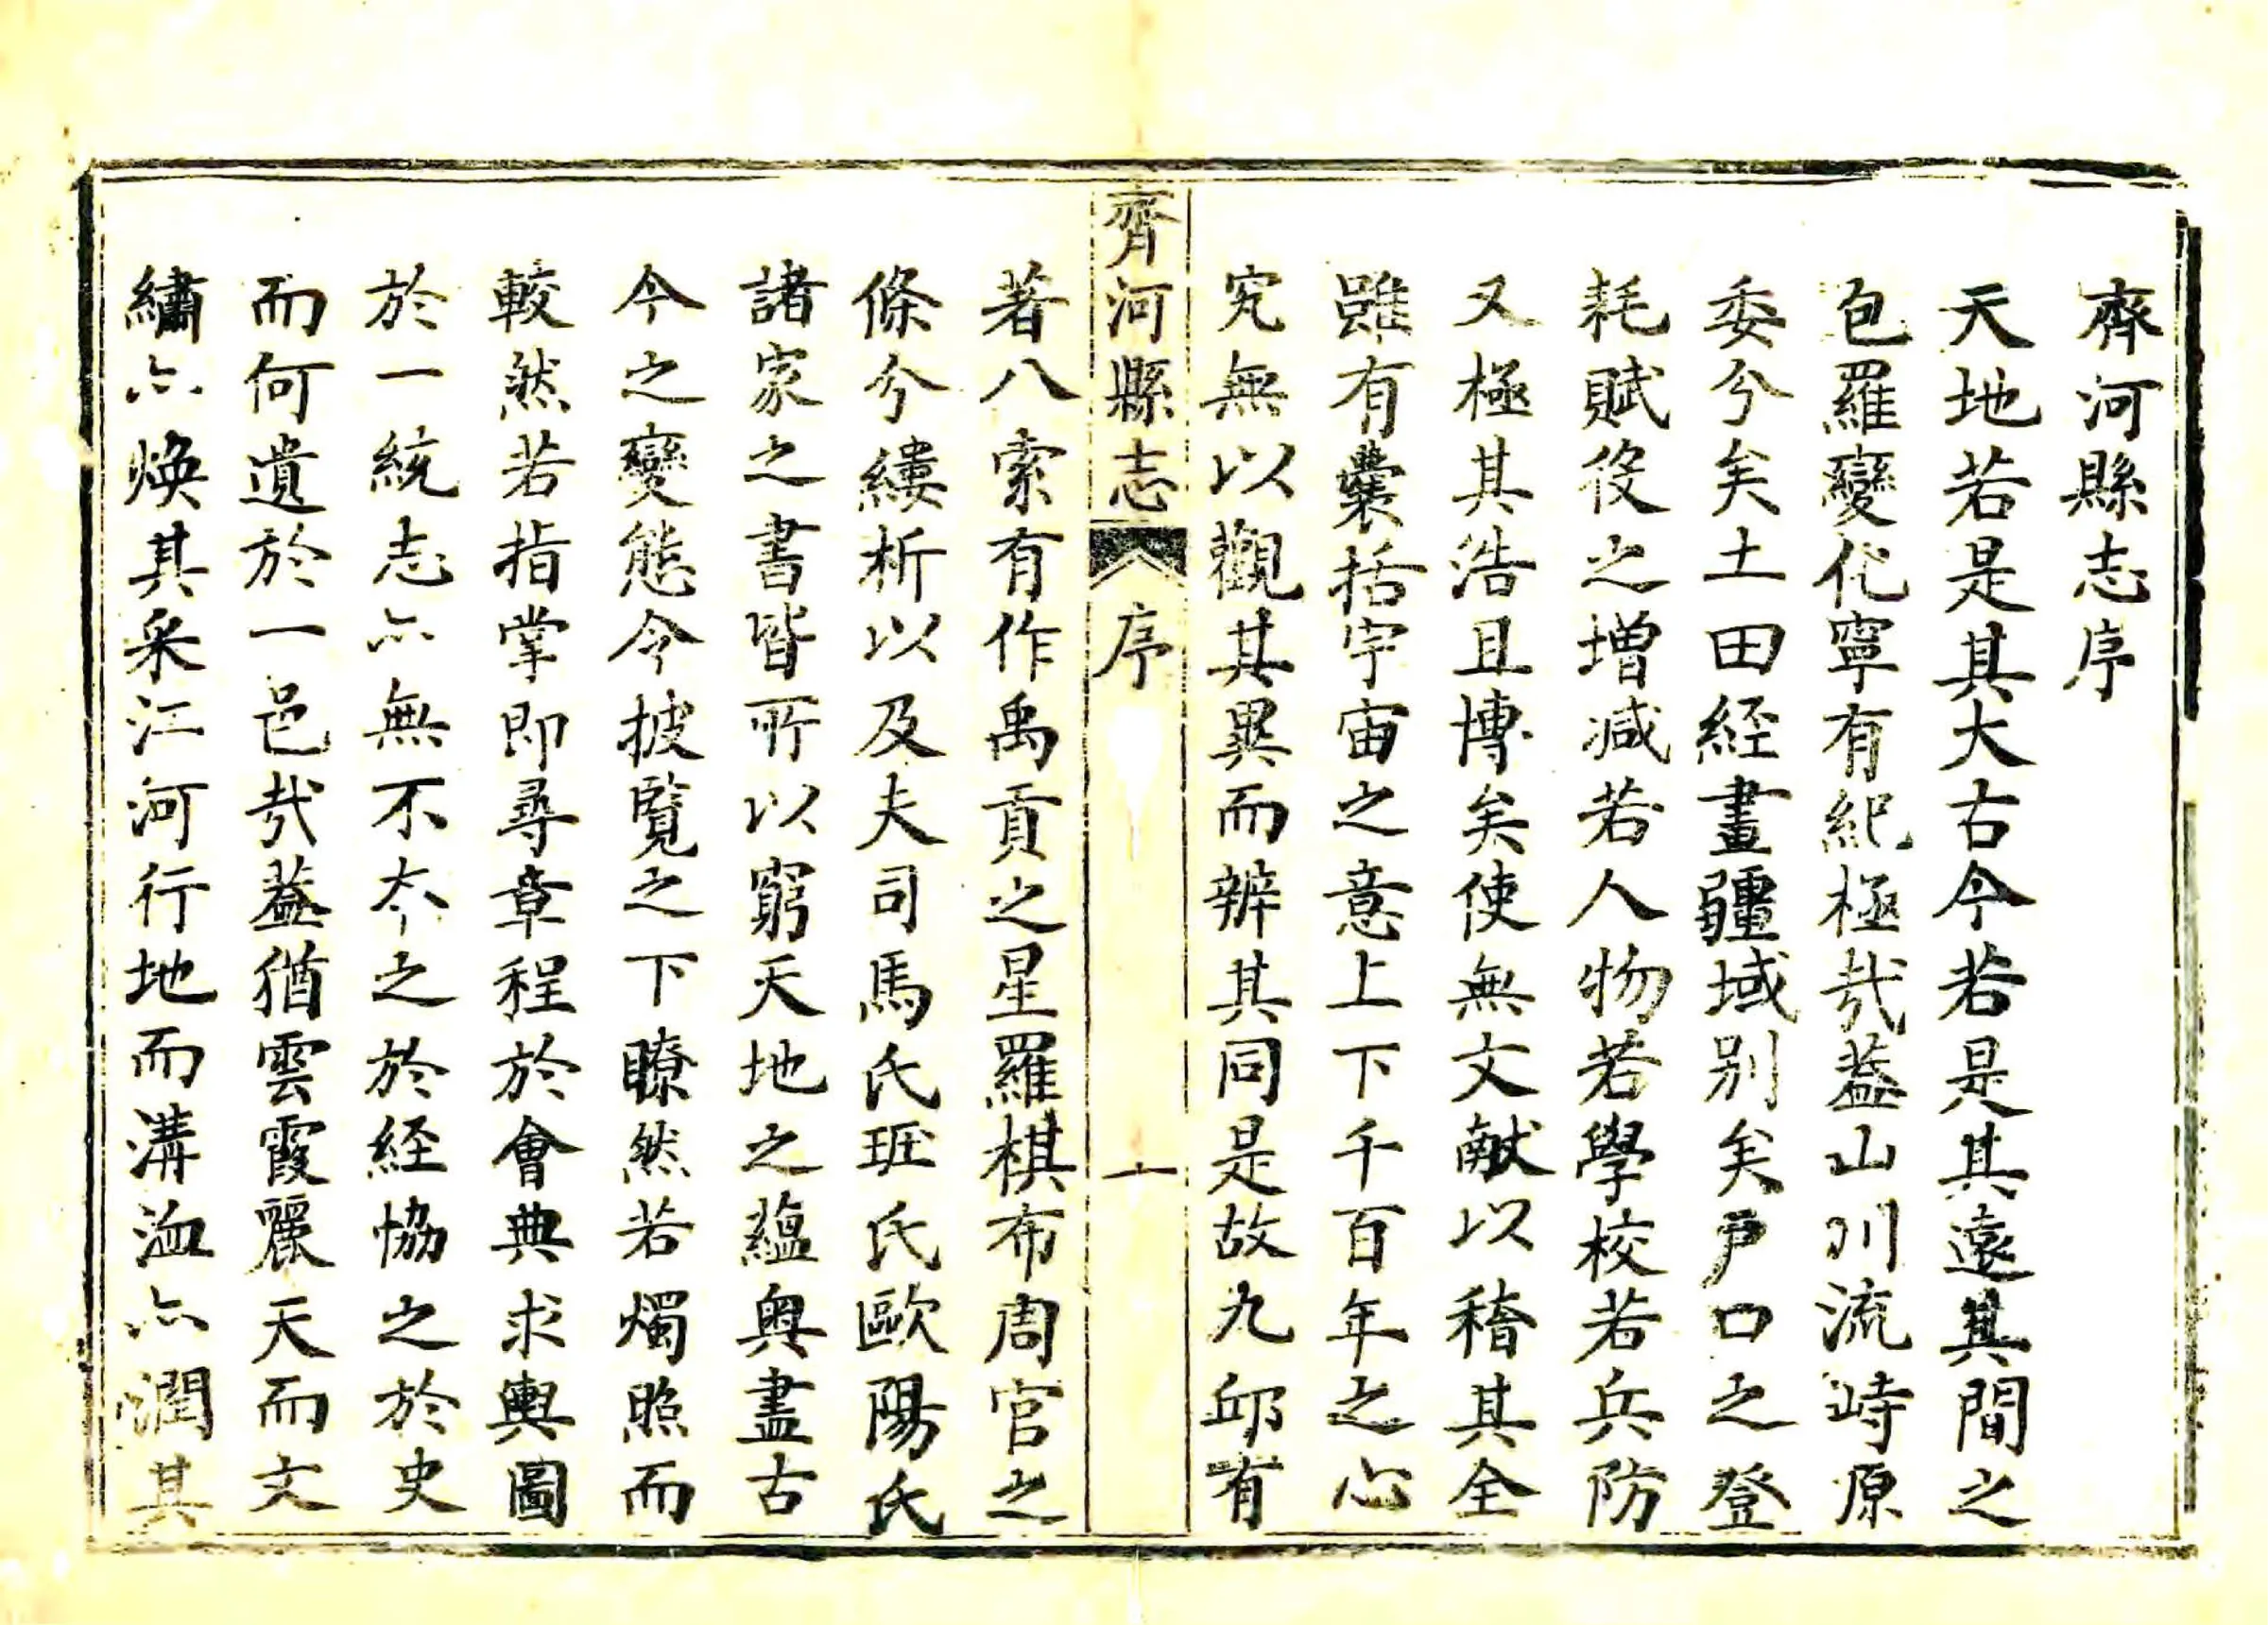 齊河縣志序
天地若是其大古今若是其遠其間之
包羅變化寧有紀極㢤葢山川流峙原
委兮矣土田経畫疆域别矣戸口之登
耗賦役之增减若人物若學校若兵防
又極其浩且博矣使無文献以稽其全
雖有囊括宇宙之意上下千百年之心
究無以觀其異而辨其同是故九邱有
齊河縣志
序
一
著八索有作禹貢之星羅棋布周官之
條兮縷析以及夫司馬氏班氏歐陽氏
諸家之書皆所以窮天地之蘊奥盡古
今之變態令披覧之下瞭然若燭照而
較然若指掌即尋章程於會典求輿圖
於一統志亦無不夲之於経恊之於史
而何遺於一邑㢤葢猶雲霞麗天而文
繡亦煥其采江河行地而溝洫亦潤其